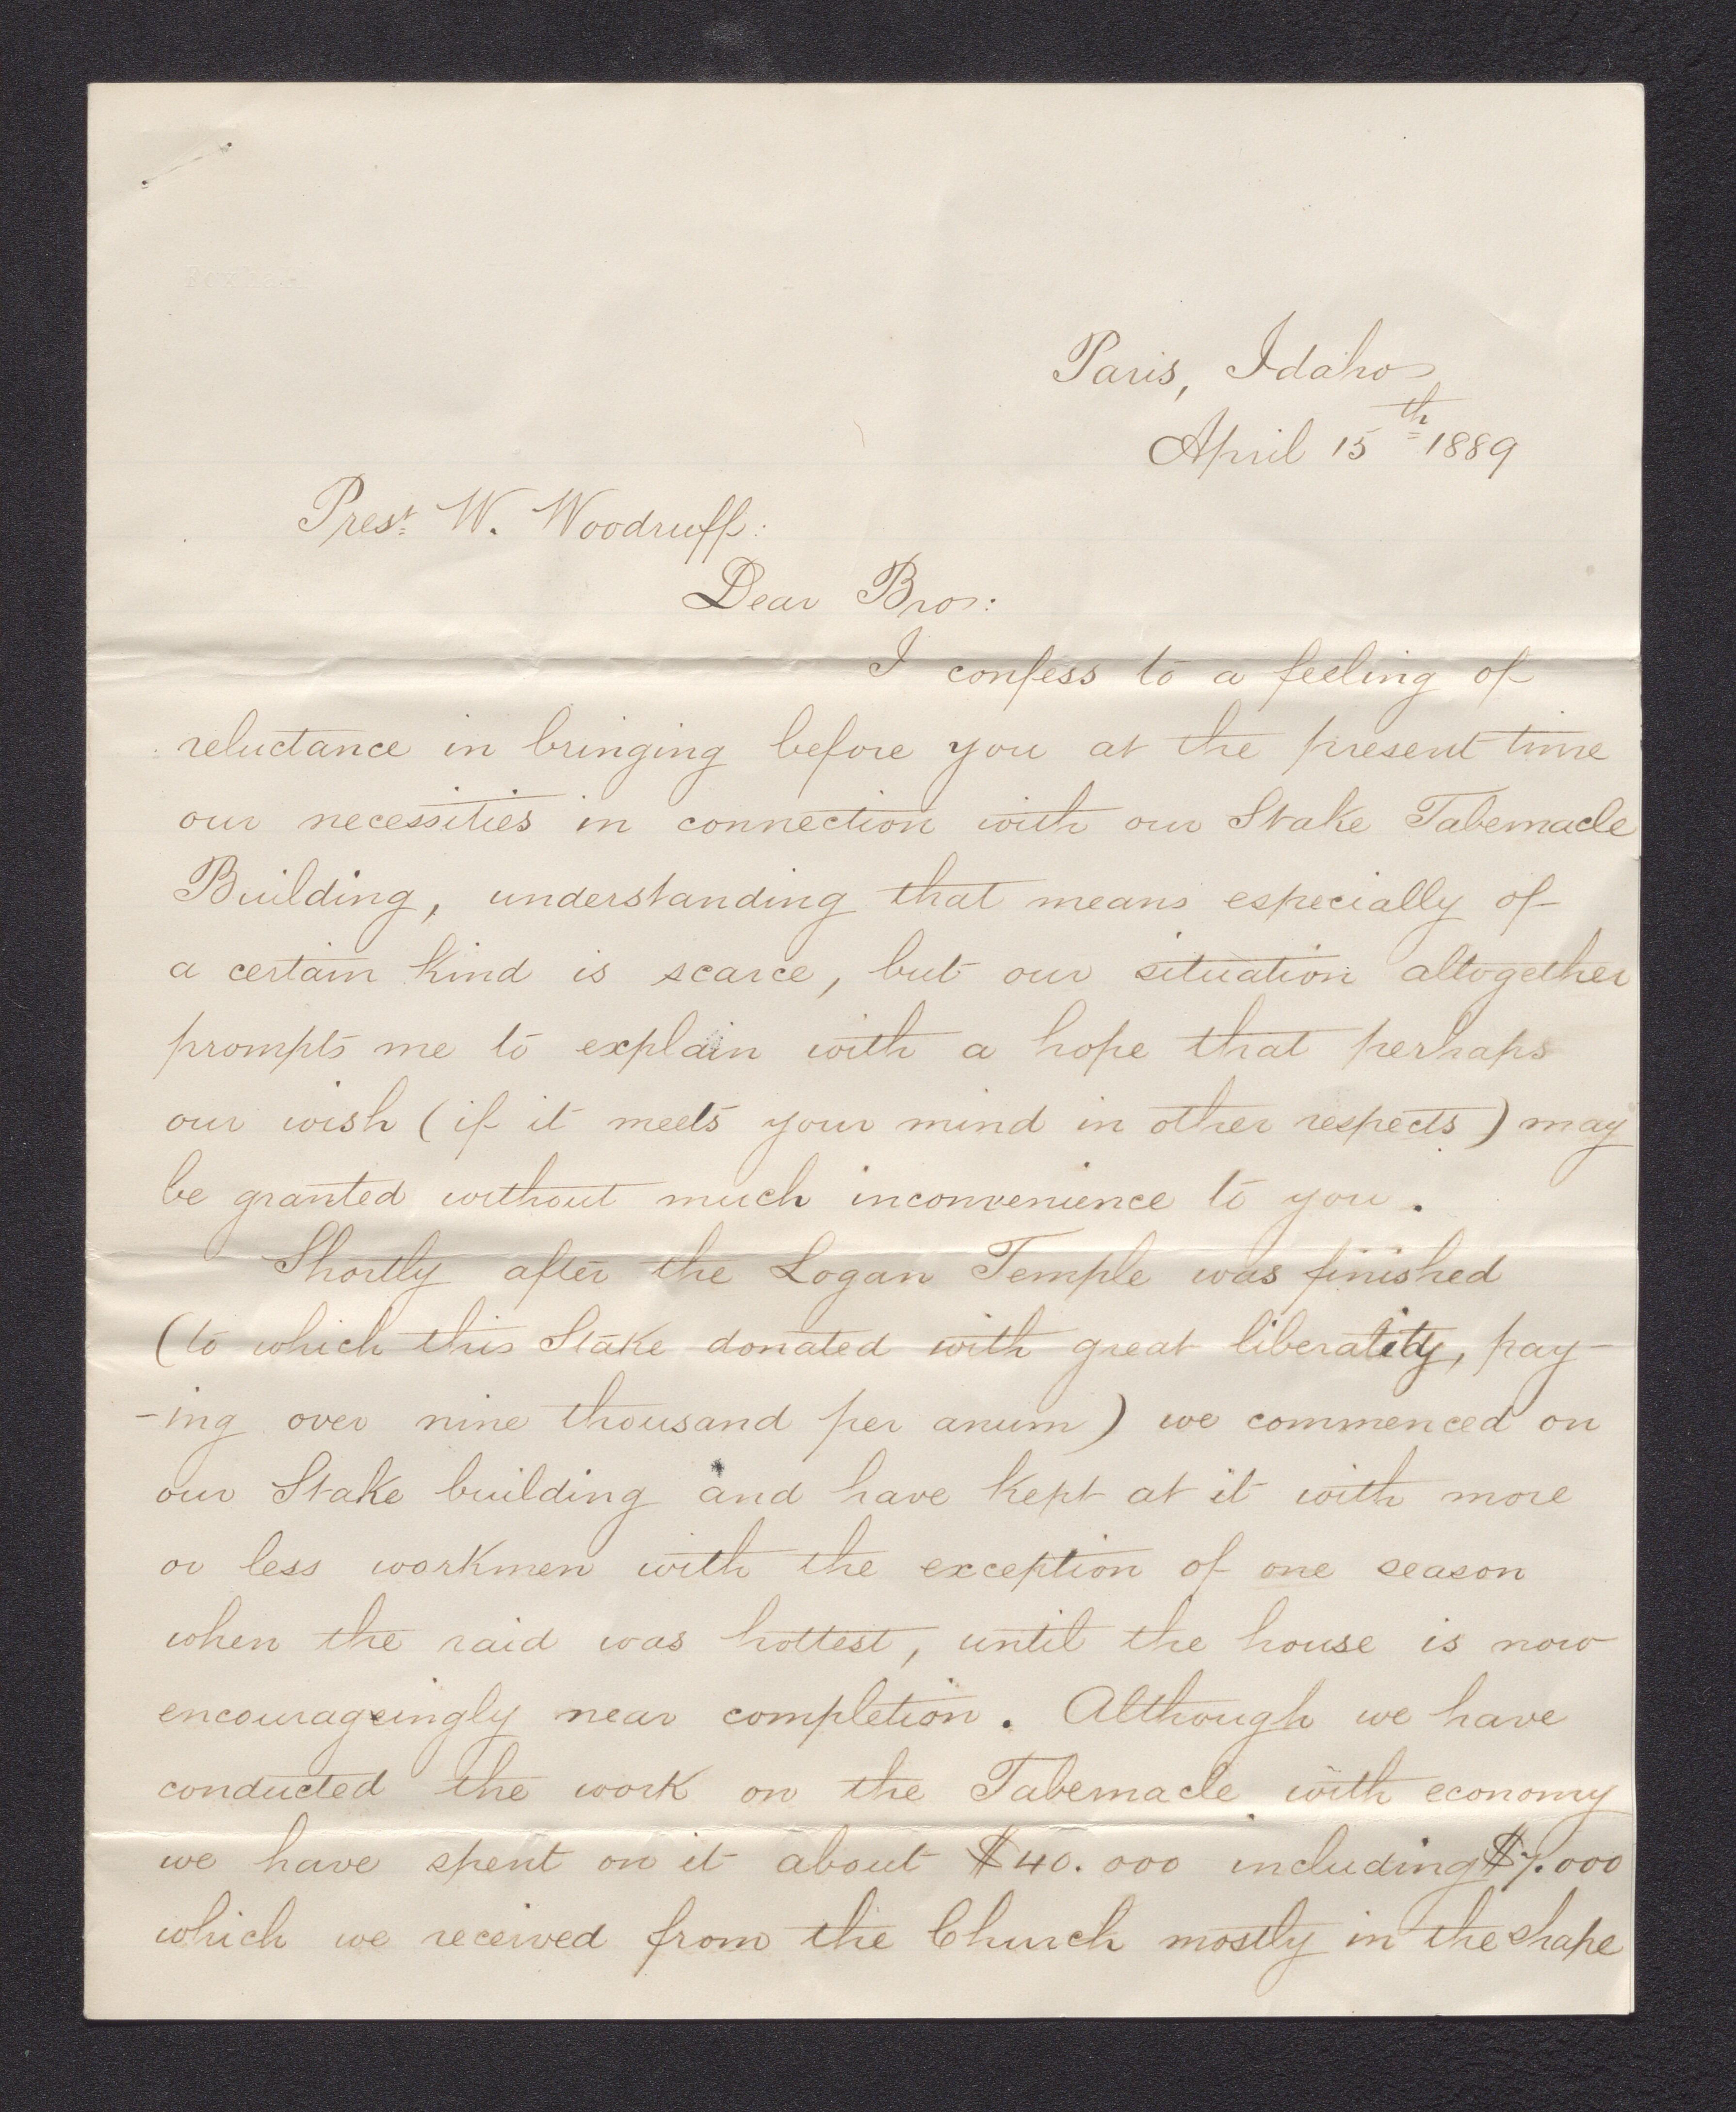 Paris, Idaho
April 15th 1889
Prest W. Woodruff:
Dear Bro:
I confess to a feeling of
reluctance in bringing before you at the present time
our necessities in connection with our Stake Tabernacle
Building, understanding that means especially of
a certain kind is scarce, but our situation altogether
prompts me to explain with a hope that perhaps
our wish (if it meets your mind in other respects) may
be granted without much inconvenience to you.
Shortly after the Logan Temple was finished
(to which this Stake donated with great liberality, pay-
-ing over nine thousand per anum) we commenced on
our Stake building and have kept at it with more
or less workmen with the exception of one season
when the raid was hottest, until the house is now
encourageingly near completion. Although we have
conducted the work on the Tabernacle with economy
we have spent on it about $40.000 including $7.000
which we received from the Church mostly in the shape